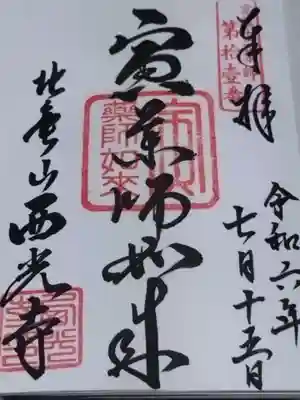 奉拝
第拾壹番
令和六年
七月十五日
寅薬師如来
薬師如来
西光寺